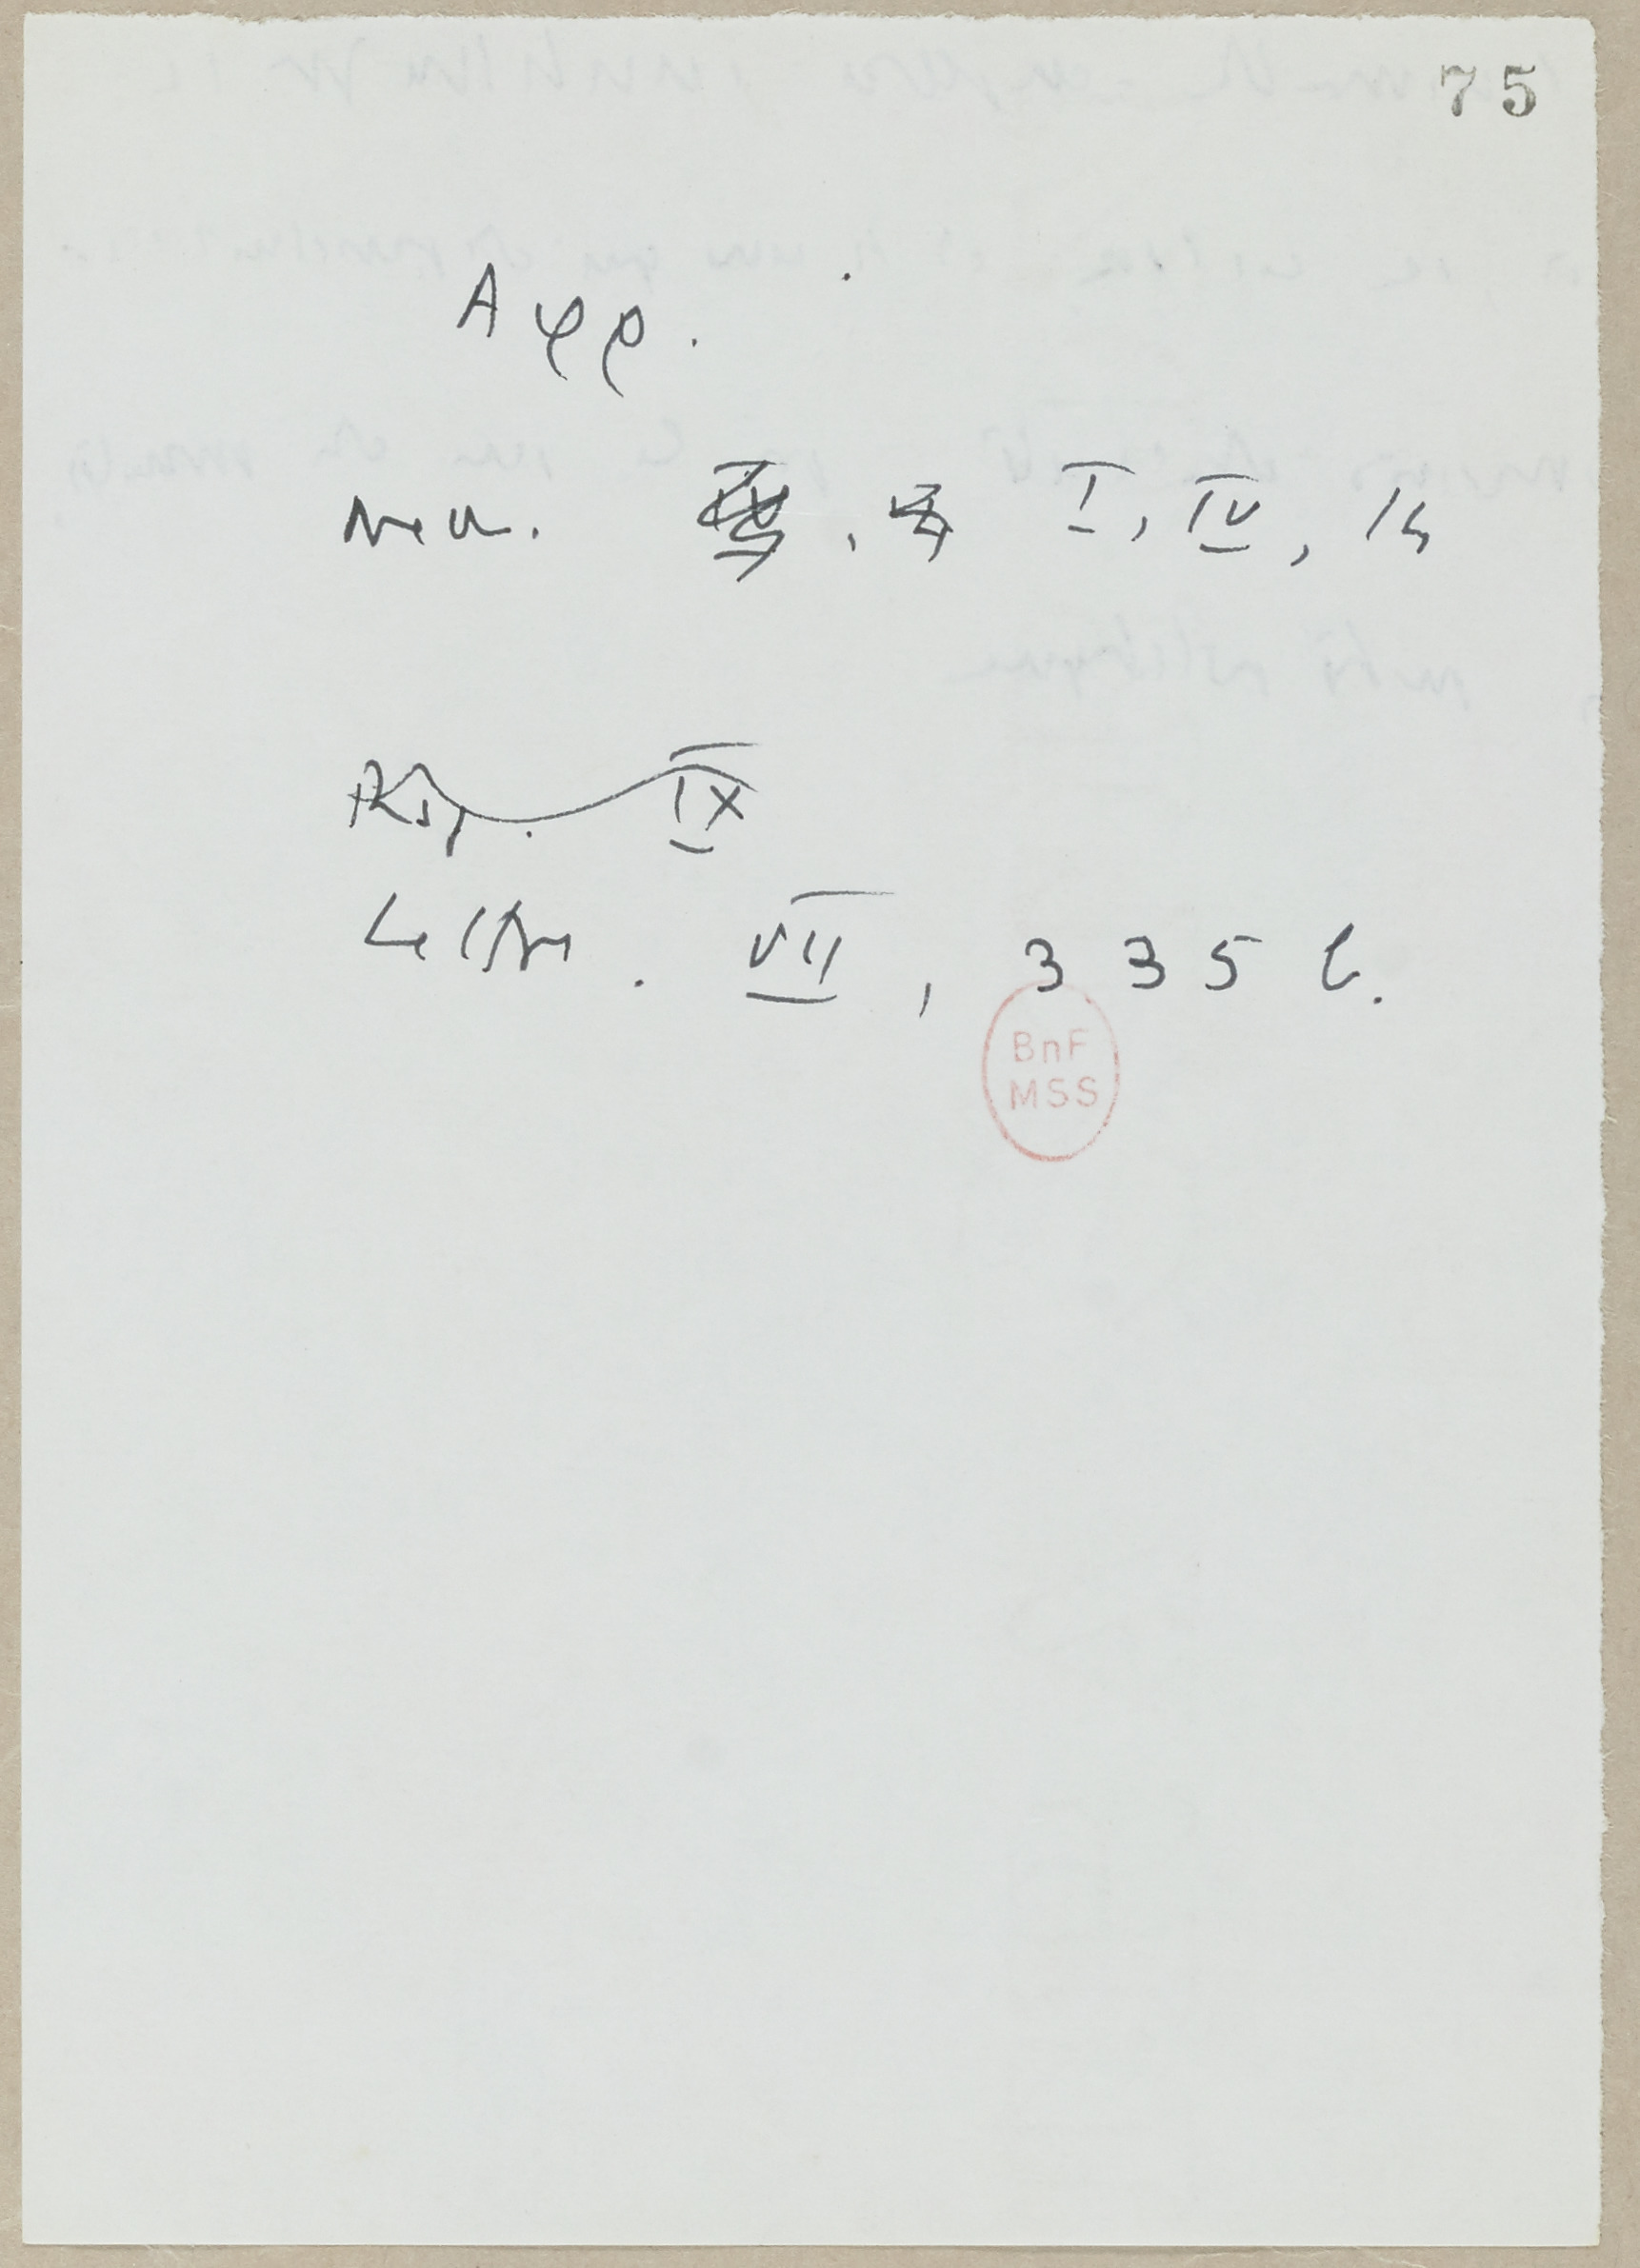 75
App.
Mem. I, IV, 14
Rép. IX
Lettre. VII, 335 b.
BnF
MSS